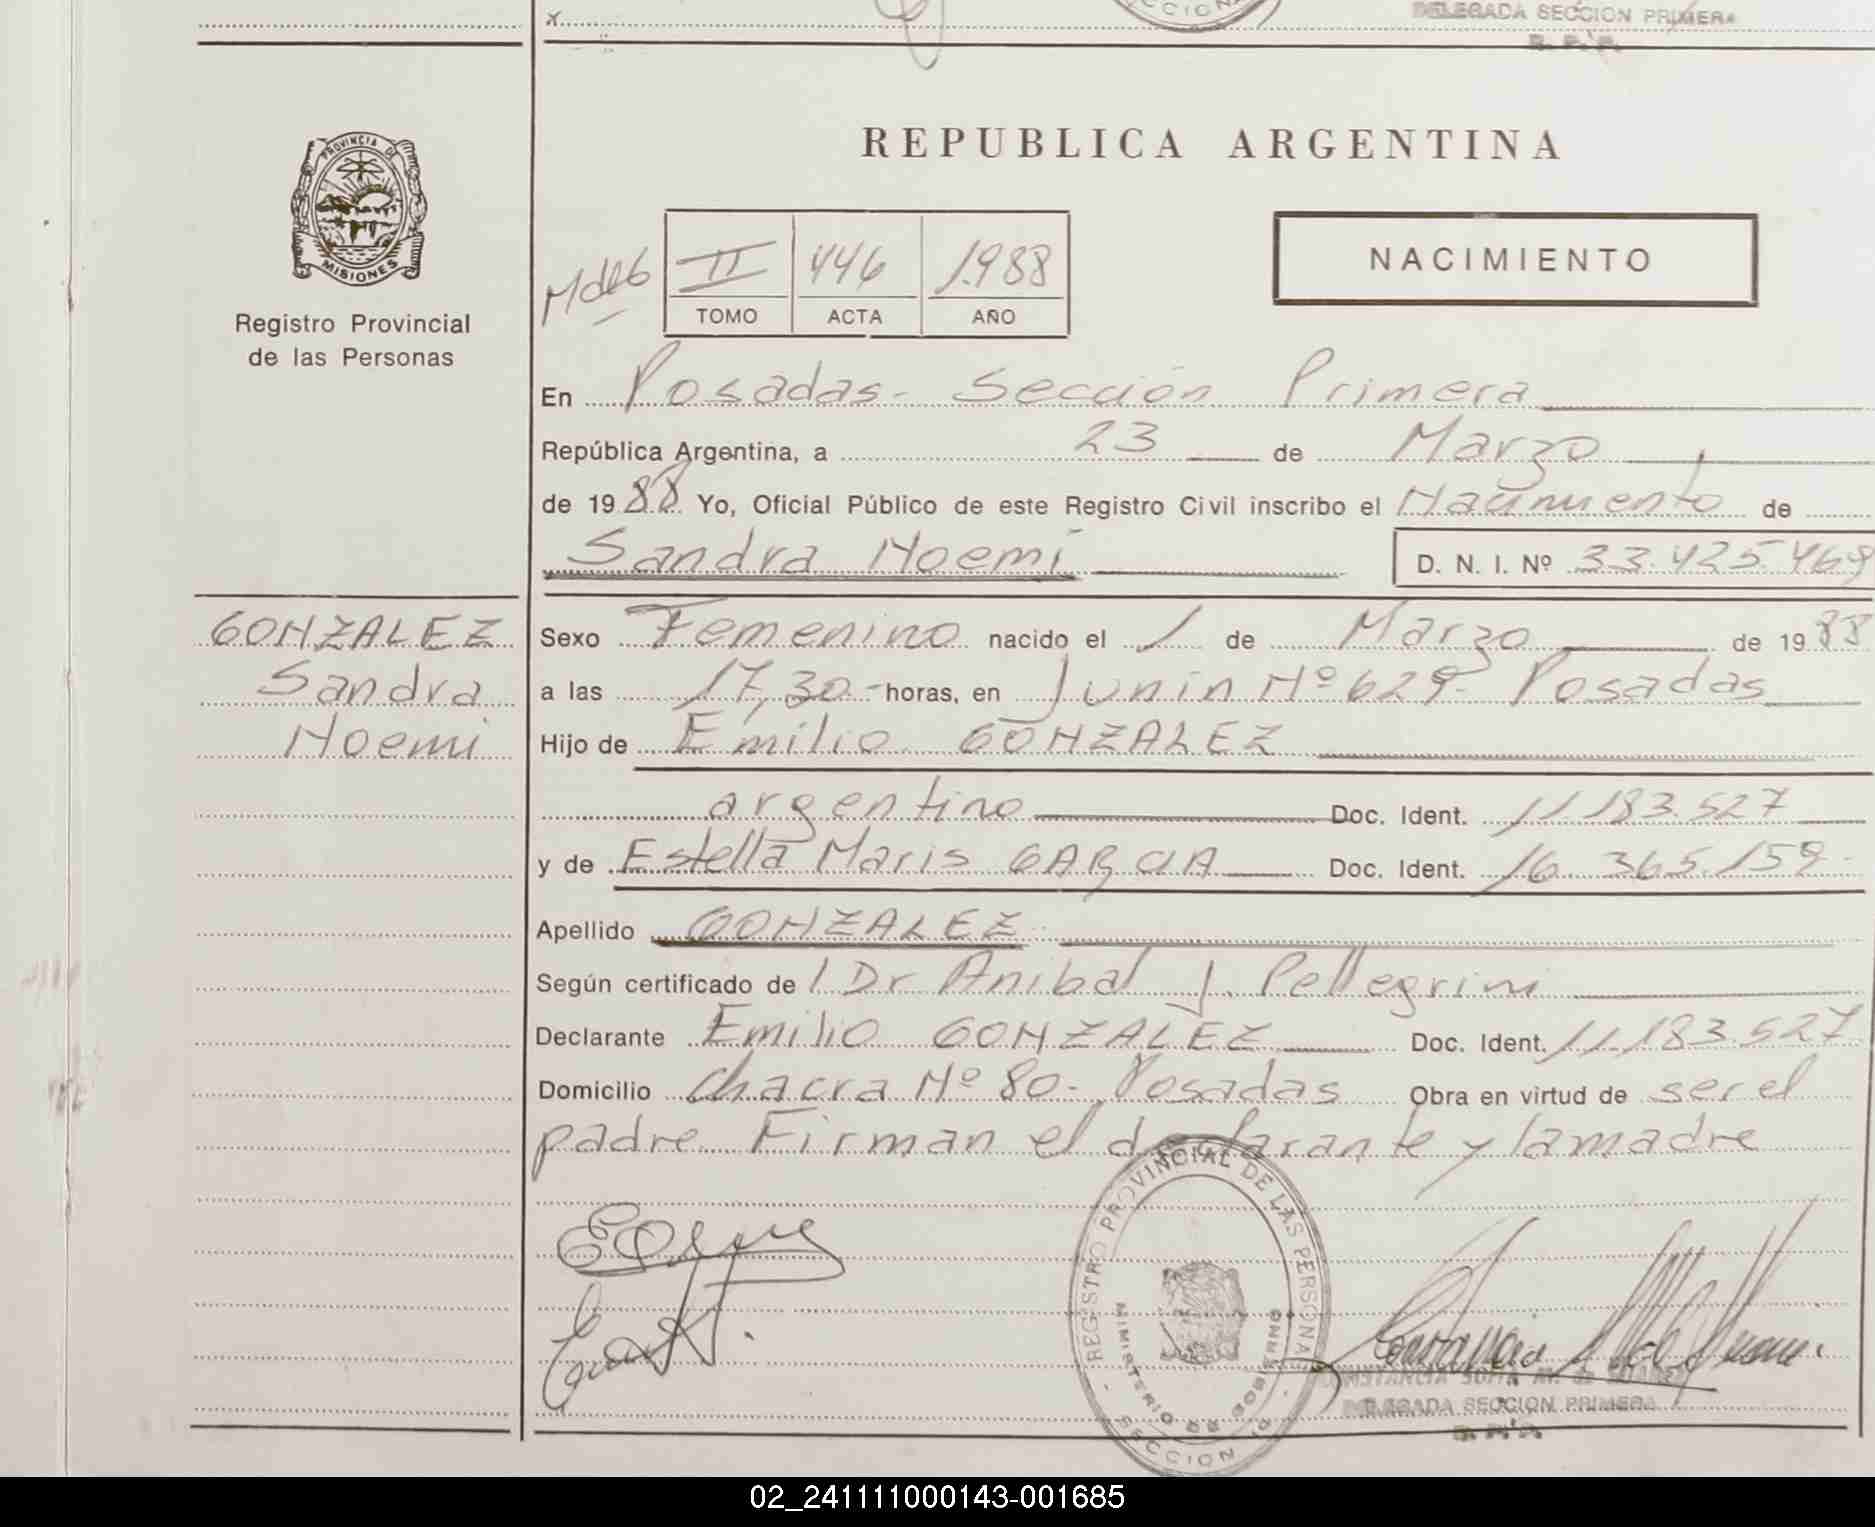 DELEGADA SECCION PRIMERA
R. P. P.
PROVINCIA DE
MISIONES
Registro Provincial
de las Personas
REPUBLICA ARGENTINA
NACIMIENTO
II 446 1988
TOMO ACTA AÑO
En Posadas - Sección Primera
República Argentina, a 23 de Marzo
de 1988 Yo, Oficial Público de este Registro Civil inscribo el Nacimiento de
Sandra Noemí D. N. I. Nº 33.425.469
GONZALEZ
Sandra
Noemi
Sexo Femenino nacido el 1 de Marzo de 1988
a las 17,30 - horas, en Junín Nº 629 - Posadas
Hijo de Emilio GONZALEZ
argentino Doc. Ident. 11.183.527
y de Estella Maris GARCIA Doc. Ident. 16.365.159 -
Apellido GONZALEZ
Según certificado de l Dr Anibal J. Pellegrini
Declarante Emilio GONZALEZ Doc. Ident. 11.183.527
Domicilio Chacra Nº 80 - Posadas Obra en virtud de ser el
padre. Firman el declarante y la madre
REGISTRO PROVINCIAL DE LAS PERSONAS
MINISTERIO DE GOBIERNO
SECCION 1a
DELEGADA SECCION PRIMERA
R. P. P.
02_241111000143-001685